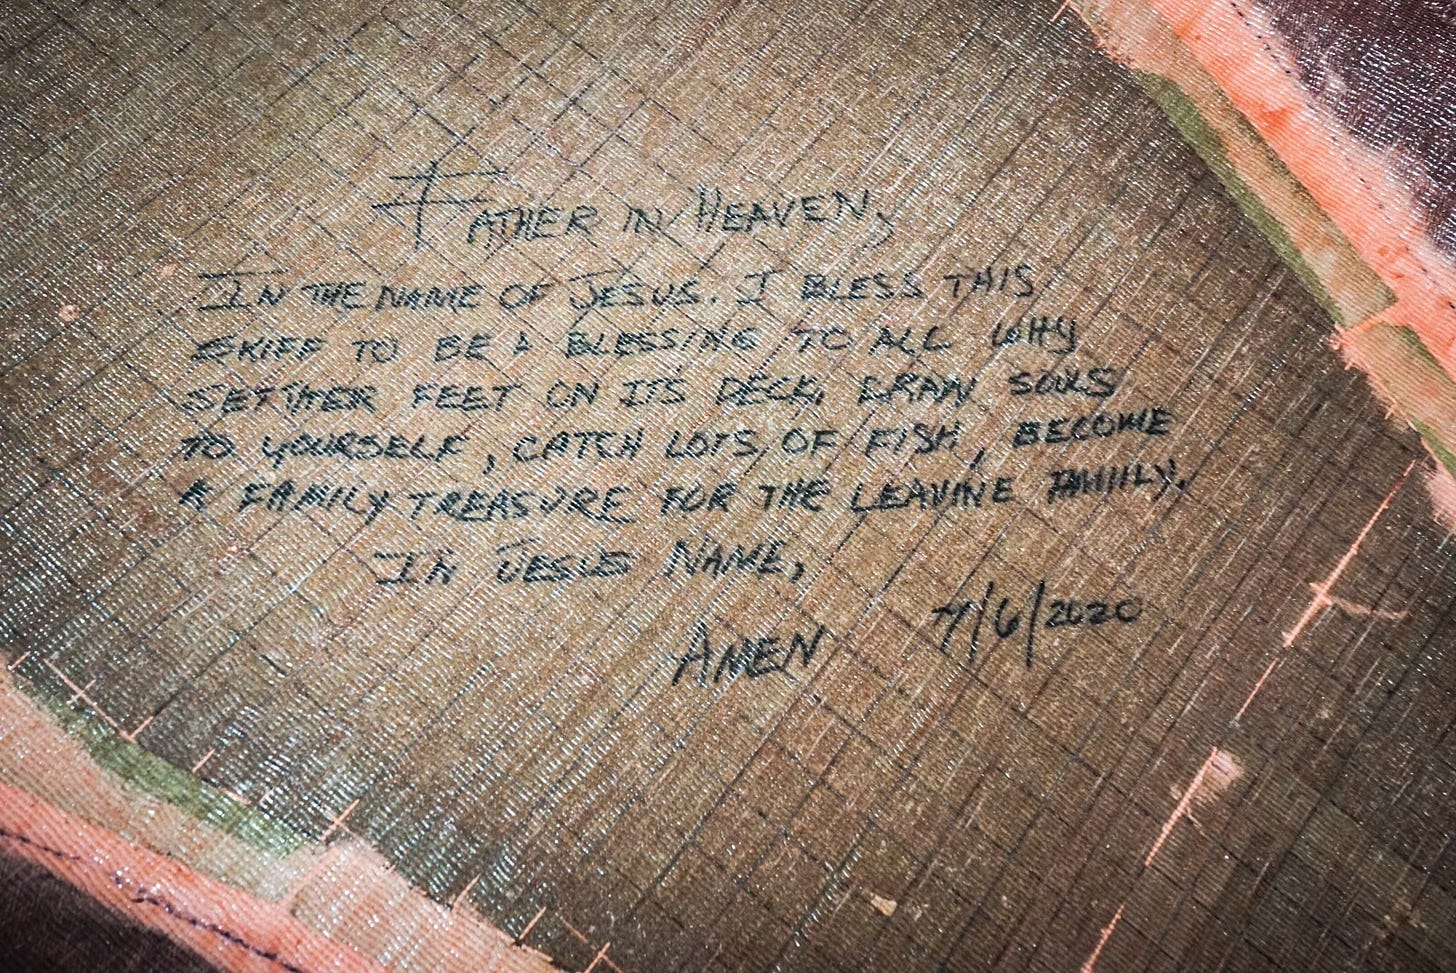 FATHER IN HEAVEN,
IN THE NAME OF JESUS. I BLESS THIS
SKIFF TO BE A BLESSING TO ALL WHO
SET THEIR FEET ON ITS DECK, DRAW SOULS
TO YOURSELF, CATCH LOTS OF FISH, BECOME
A FAMILY TREASURE FOR THE LEAVINE FAMILY.
IN JESUS NAME,
AMEN 7/6/2020